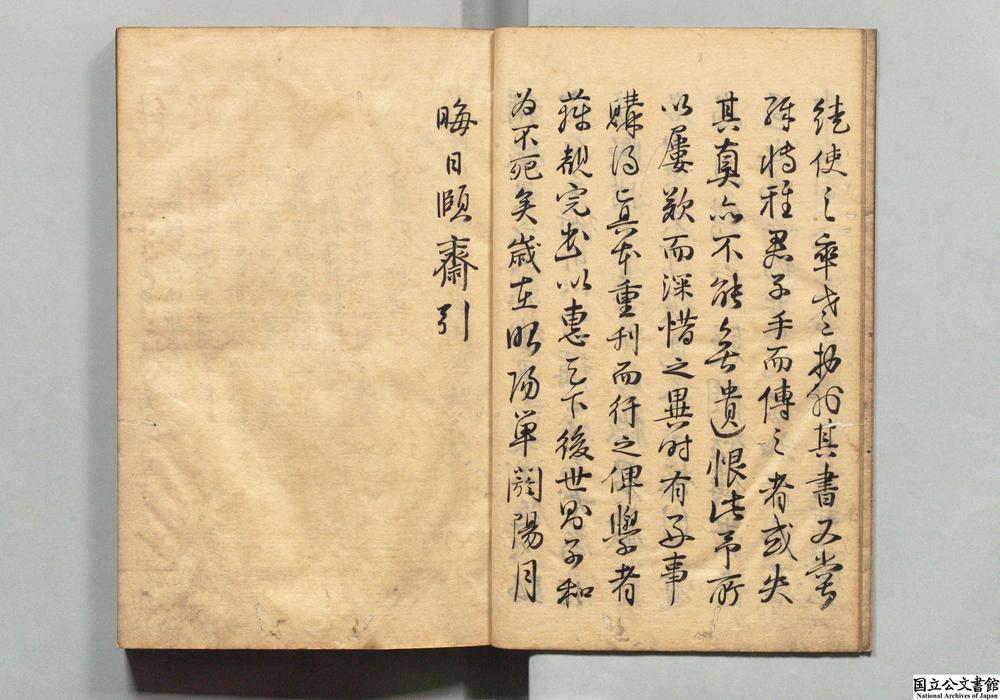 使之率 其書又嘗
特種君子手而傳之者或失
其真亦不能無遺恨此予所
以屢歎而深惜之異时有好事
購得真本重刊而行之俾學者
獲覩完書以惠天下後世則子和
为不死矣歲在昭陽單閼陽月
晦日頤齋引
国立公文書館
National Archives of Japan